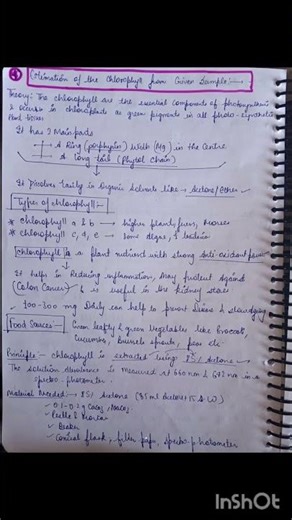 Estimation of the Chlorophyll from Given Sample:-
Theory:- The chlorophyll are the essential components of photosynthesis
& occurs in chloroplasts as green pigments in all photo-synthetic
Plant tissues
It has 2 Main parts
→ A Ring (porphyrin) with (Mg) in the Centre
→ A long tail (Phytol chain)
It Dissolves Easily in Organic Solvents like → Acetone/Ether.
Types of chlorophyll:-
* Chlorophyll a & b → higher plants, ferns, Mosses
* Chlorophyll c, d, e → some algae, &
Chlorophyll is a plant nutrient with strong Anti-oxidant power
It helps in Reducing inflammation, May protect Against
(Colon Cancer) & is useful in the kidney stones
100-300 mg Daily can help to prevent Disease &
Food Sources:- Green leafty & green Vegetables like Broccoli,
Cucumbers, Brussels sprouts, peas etc.
Principle - chlorophyll is extracted using 85% Acetone.
The solution absorbance is measured at 660 nm & 642 nm in a
spectro-photometer
Material Needed → 85% Acetone (85 ml Acetone + 15 D.W)
0.1-0.2 g CaCO3, Na2CO3
Pestle & Mortar
Beaker
Conical flask, filter paper, spectrophotometer
InShOt